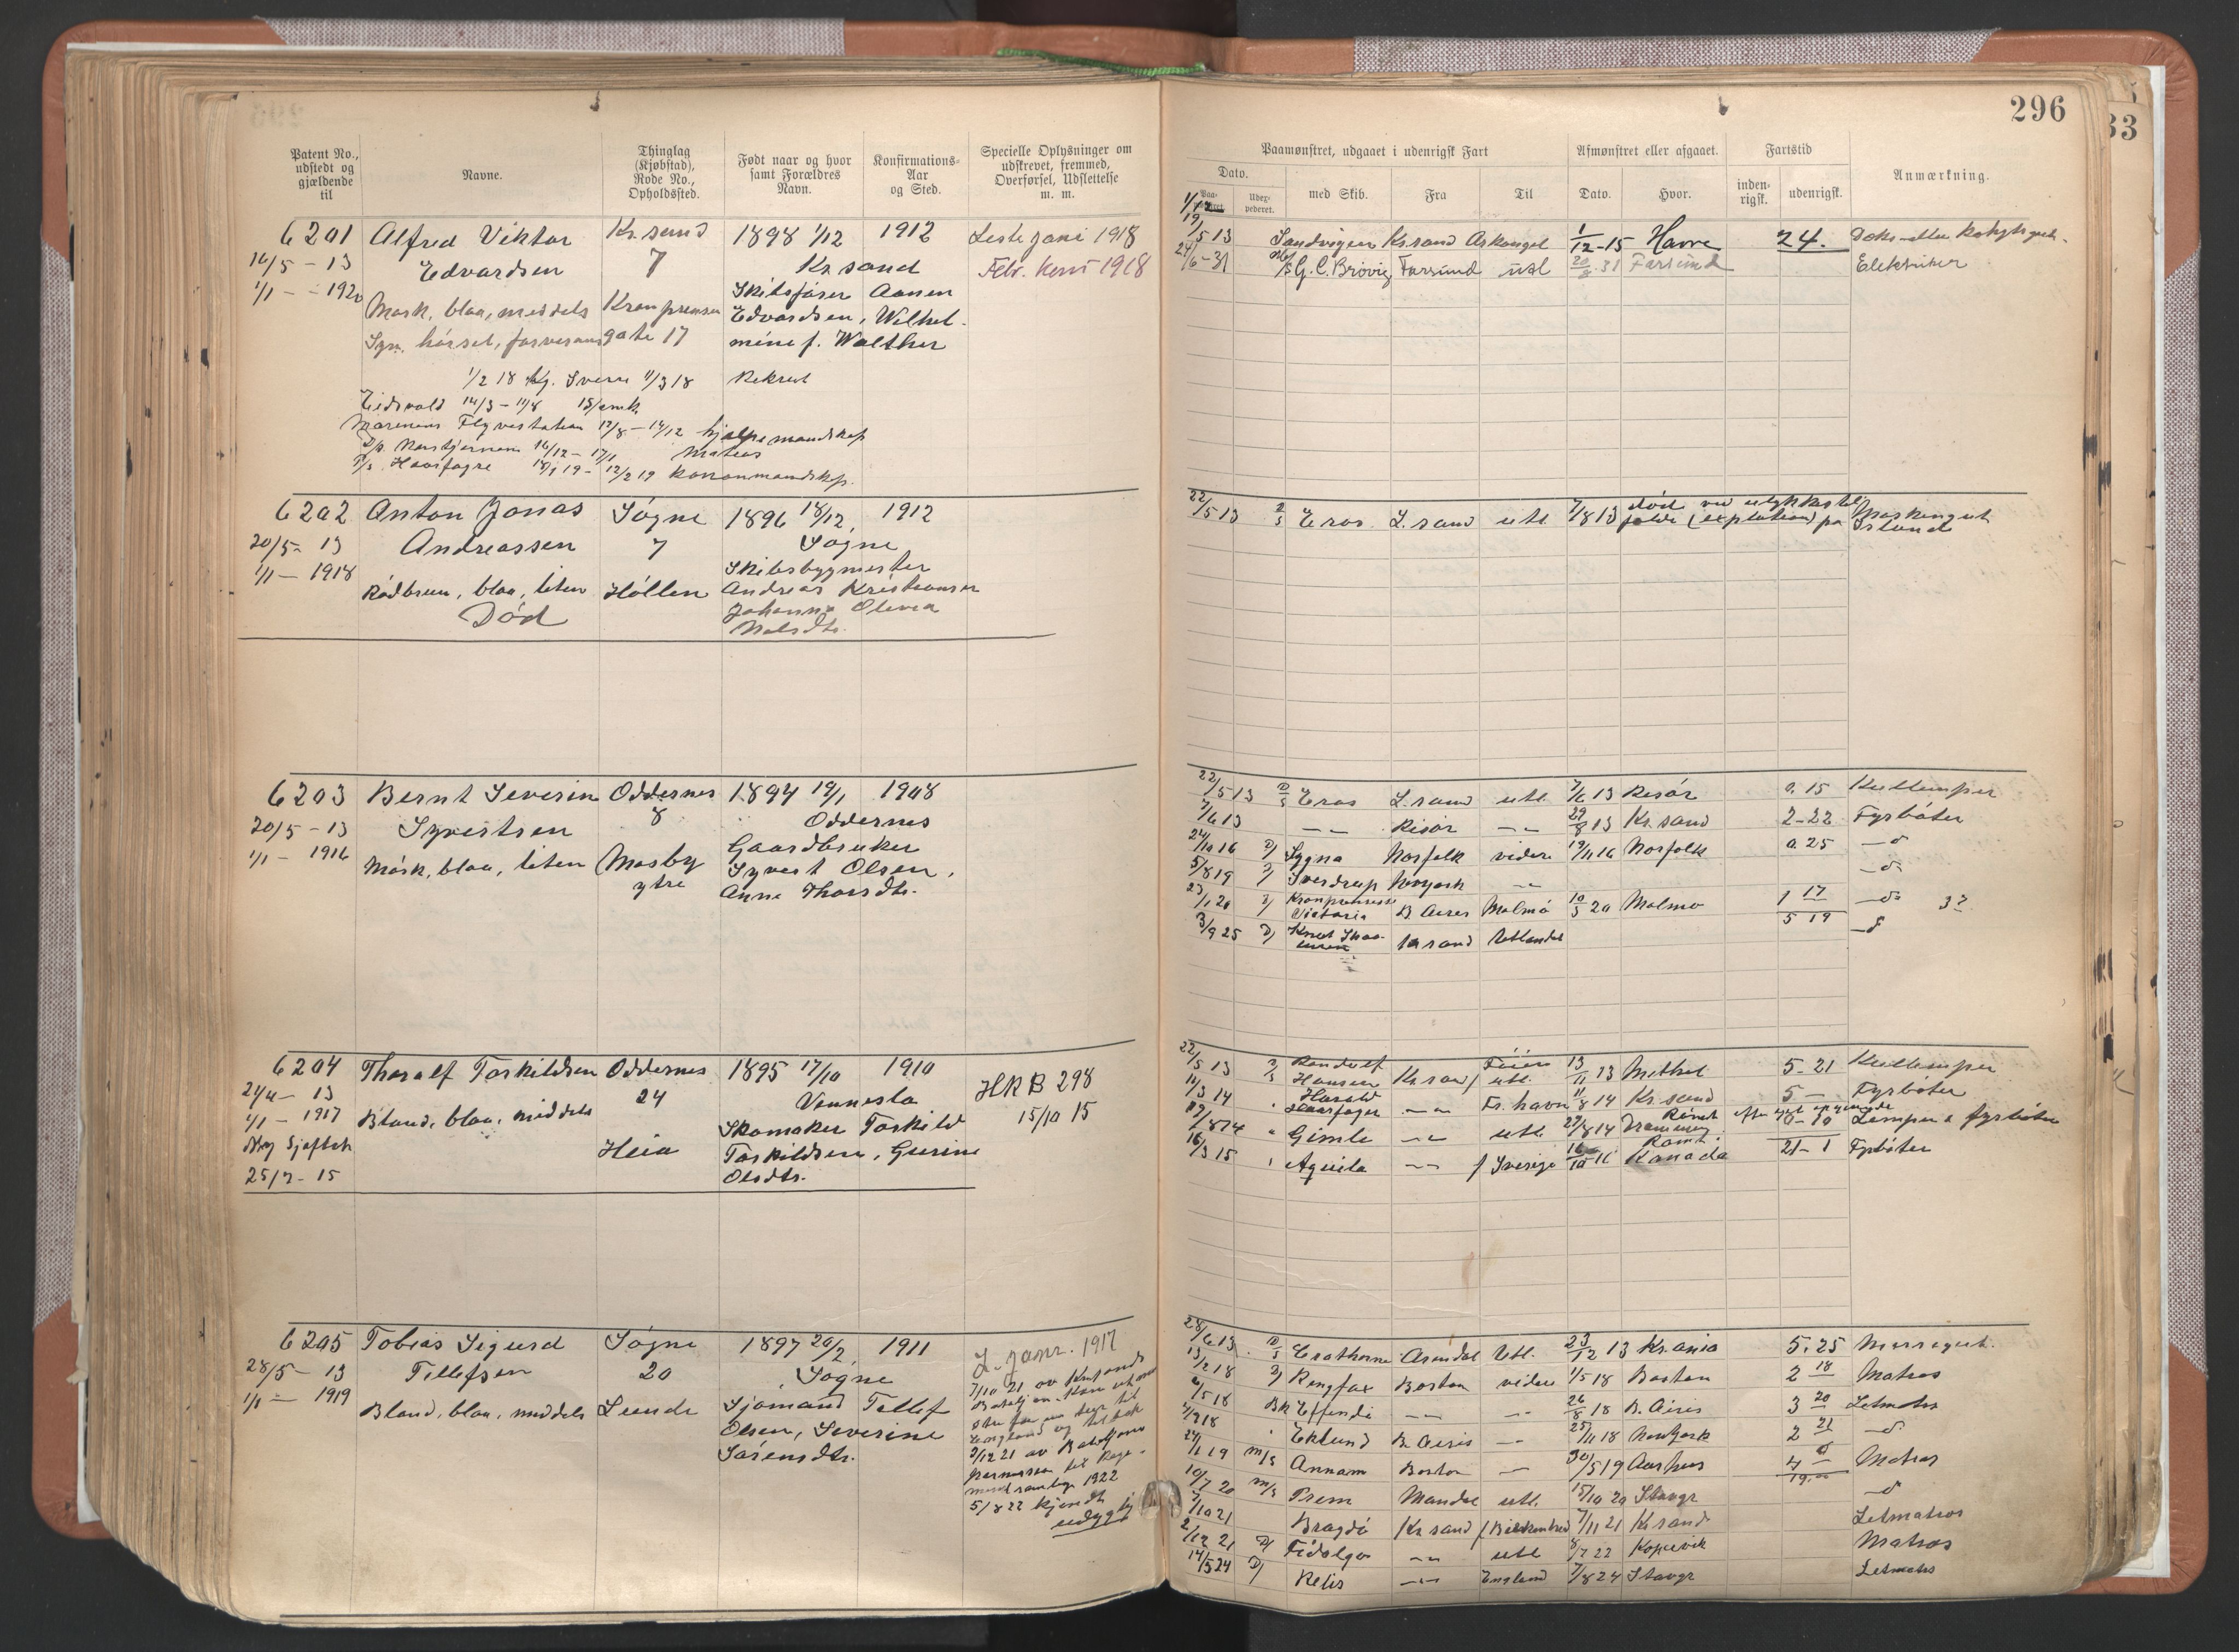 296
33
Patent No., udstedt og gjældende til
Navne.
Thinglag (Kjøbstad), Rode No., Opholdssted.
Født naar og hvor samt Forældres Navn.
Konfirmations-Aar og Sted.
Specielle Oplysninger om udskrevet, fremmed, Overførsel, Udslettelse m. m.
Paamønstret, udgaaet i udenrigsk Fart
Afmønstret eller afgaaet.
Fartstid
Anmærkning.
Dato.
Udex-pederet.
med Skib.
Fra
Til
Dato.
Hvor.
inden-rigsk.
udenrigsk.
6201 Alfred Viktor Kr.sand 1898 1/12 1912
16/5 - 13 Edvardsen 7 Kr.sand Febr. 1918
1/1 - 1920 Skibsfører Aanen
Mørk, blaa, middels Kronprinsen Edvardsen, Wilhel-
Syn, hørsel, farvesans gate 17 mine f. Walther
1/2 18 Kg. Sverre 11/3 18 Rekrut
Eidsvold
Marinens Flyvestation 12/8 - 14/12 hjælpemandskap
Matros
Haarfagre 12/2 19 Kanonmandskp.
19/5 13 Sandvigen Kr.sand Arkangel 1/12-15 Havre 24.
24/6-31 G. C. Brøvig Farsund utl 31 Farsund Elektriker
6202 Anton Jonas Søgne 1896 18/12 1912
20/5 - 13 Andreassen 7 Søgne
1/1 - 1918 Skibsbygmester
Rødbrun, blaa, liten Høllen Andreas Kristiansen
Død Johanne Olevia
Nelsdtr.
22/5 13 D/S Eros Kr.sand utl. 7/8 13 død ved ulykkestil-
fælde (explotion) på Island
Maskingut
6203 Bernt Severin Oddernes 1894 19/1 1908
20/5 - 13 Syvertsen 8 Oddernes
1/1 - 1916 Gaardbruker
Mørk, blaa, liten Mosby Syvert Olsen,
ytre Anne Thorsdtr.
22/5 13 D/S Eros Kr.sand utl. 7/6 13 Risør 0.15 Kullemper
7/6 13 -"- Risør -"- 29/8 13 Kr.sand 2-22 Fyrbøter
24/10 16 D/ Sygna Norfolk videre 19/11 16 Norfolk 0.25 -d-
5/8 19 D/ Sverdrup -"- -d-
23/1 20 D/ Kronprinsesse Victoria B. Aires Malmø 10/5 20 Malmø 1 17 -d-
5 19
3/9 25 D/ Knut Kr sand Utlandet -d-
6204 Thoralf Torkildsen Oddernes 1895 17/10 1910 HRB 298
24/4 - 13 24 Vennesla 15/10 15
1/1 - 1917 Blond, blaa, middels Skomaker Torkild
Ny Sjøfbok Heia Torkildsen, Gurine
25/2 - 15 Olsdtr.
22/5 13 D/S Randulf Hansen Kr.sand utl. 13/11 13 Methel 5-21 Kullemper
14/3 14 Harald Haarfager -"- Fr. havn 11/8 14 Kr.sand 5 - Fyrbøter
Gimle -"- utl. 27/8 14 Lemper & fyrbøter
16/3 15 Aquila -"- f Sverige Kanada 21-1 Fyrbøter
6205 Tobias Sigurd Søgne 1897 20/2 1911 1917
28/5 - 13 Tellefsen 20 Søgne
1/1 - 1919 Sjømand Tellef
Blond, blaa, middels Lunde Olsen, Severine
Sørensdtr.
7/10 21 av
England og tilbake
1922
5/8 22 kjendt
udygtig
28/6 13 D/S Erathorne Arendal Utl. 23/12 13 Kr.ania 5.25 Messegut.
13/2 18 D/ Ringfax Boston videre 1/5 18 Boston 2 18 Matros
4/5 18 Bk Effendi -"- -"- 26/8 18 B. Aires 3 20 Letmatros
Eklund B. Aires -"- 25/11 18 New York 2 21 -d-
24/1 19 M/S Annam Boston -"- 30/5 19 Aarhus 4 Matros
10/7 20 M/S Prem Mandal utl. 15/10 20 Stavgr -d-
7/10 21 Bragdø Kr sand f Birkenhed 7/11 21 Kr sand Letmatros
2/12 21 D/ Fidelga -"- utl 22 Kopervik Matros
14/5 24 D/ Relis -"- England 7/8 24 Stavgr Letmatros